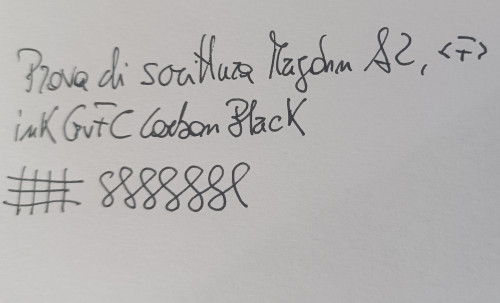 Prova di scrittura Magohn A2, <F>
ink GvFC Carbon Black